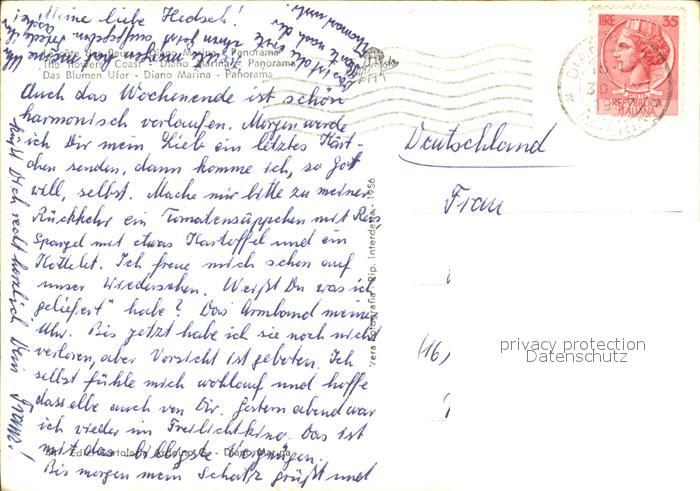 Meine liebe Hedsch!
La côte des fleurs - Diano Marina - Panorama
The flowery Coast - Diano Marina - Panorama
Das Blumen Ufer - Diano Marina - Panorama
Auch das Wochenende ist schön
harmonisch verlaufen. Morgen werde
ich Dir mein Lieb ein letztes Kärt-
chen senden, dann komme ich, so Gott
will, selbst. Mache mir bitte zu meiner
Rückkehr ein Tomatensüppchen mit Reis,
Spargel mit etwas Kartoffel und ein
Kottelet. Ich freue mich schon auf
unser Wiedersehen. Weißt Du was ich
geliefert" habe? Das Armband meiner
Uhr. Bis jetzt habe ich sie noch nicht
verloren, aber Vorsicht ist geboten. Ich
selbst fühle mich wohlauf und hoffe
dasselbe auch von Dir. Gestern abend war
ich wieder im Freilichtkino. Das ist
mit das billigste Vergnügen.
Diano Marina
Bis morgen mein Schatz grüßt und
küßt Dich recht herzlich Dein Franz!
Vera Fotografia - Rip. Interdetta - 1956
LIRE 35
REPVBBLICA
ITALIANA
Deutschland
Frau
(16)
privacy protection
Datenschutz